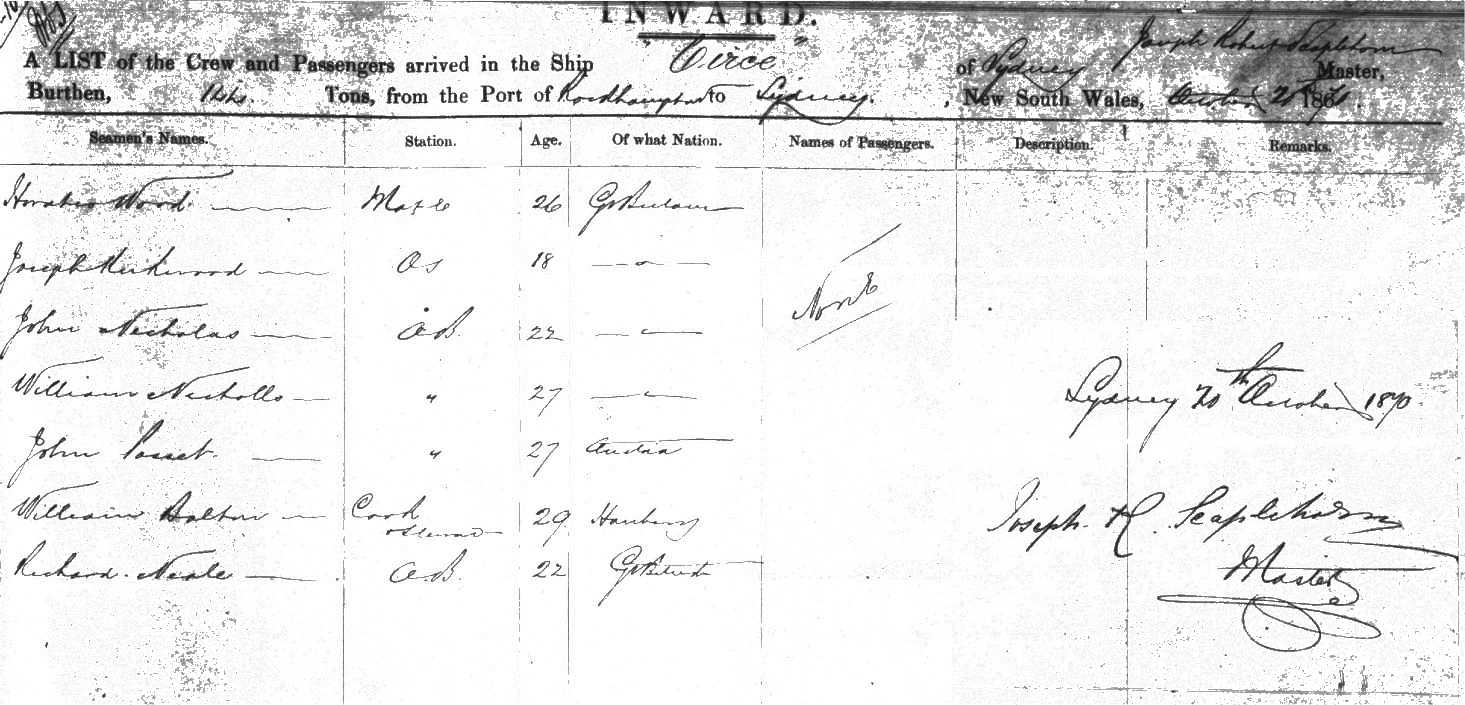 INWARD.
A LIST of the Crew and Passengers arrived in the Ship "Circe" of Sydney Joseph Robert Staplehorn Master,
Burthen, Tons, from the Port of Rockhampton to Sydney. , New South Wales, October 1870
Seamen's Names. Station. Age. Of what Nation. Names of Passengers. Description. Remarks.
Horatio Wood — Mate 26 Gt Britain
Joseph Kirkwood — OS 18 — " —
John Nicholas — A.B. 22 — " — None
William Nicholls — " 27 — " — Sydney 20th October 1870.
John — " 27 Austria
William Bolton — Cook & Steward 29 Hamburg Joseph R. Scaplehorn
Richard Neale — A.B. 22 Gt Britain Master